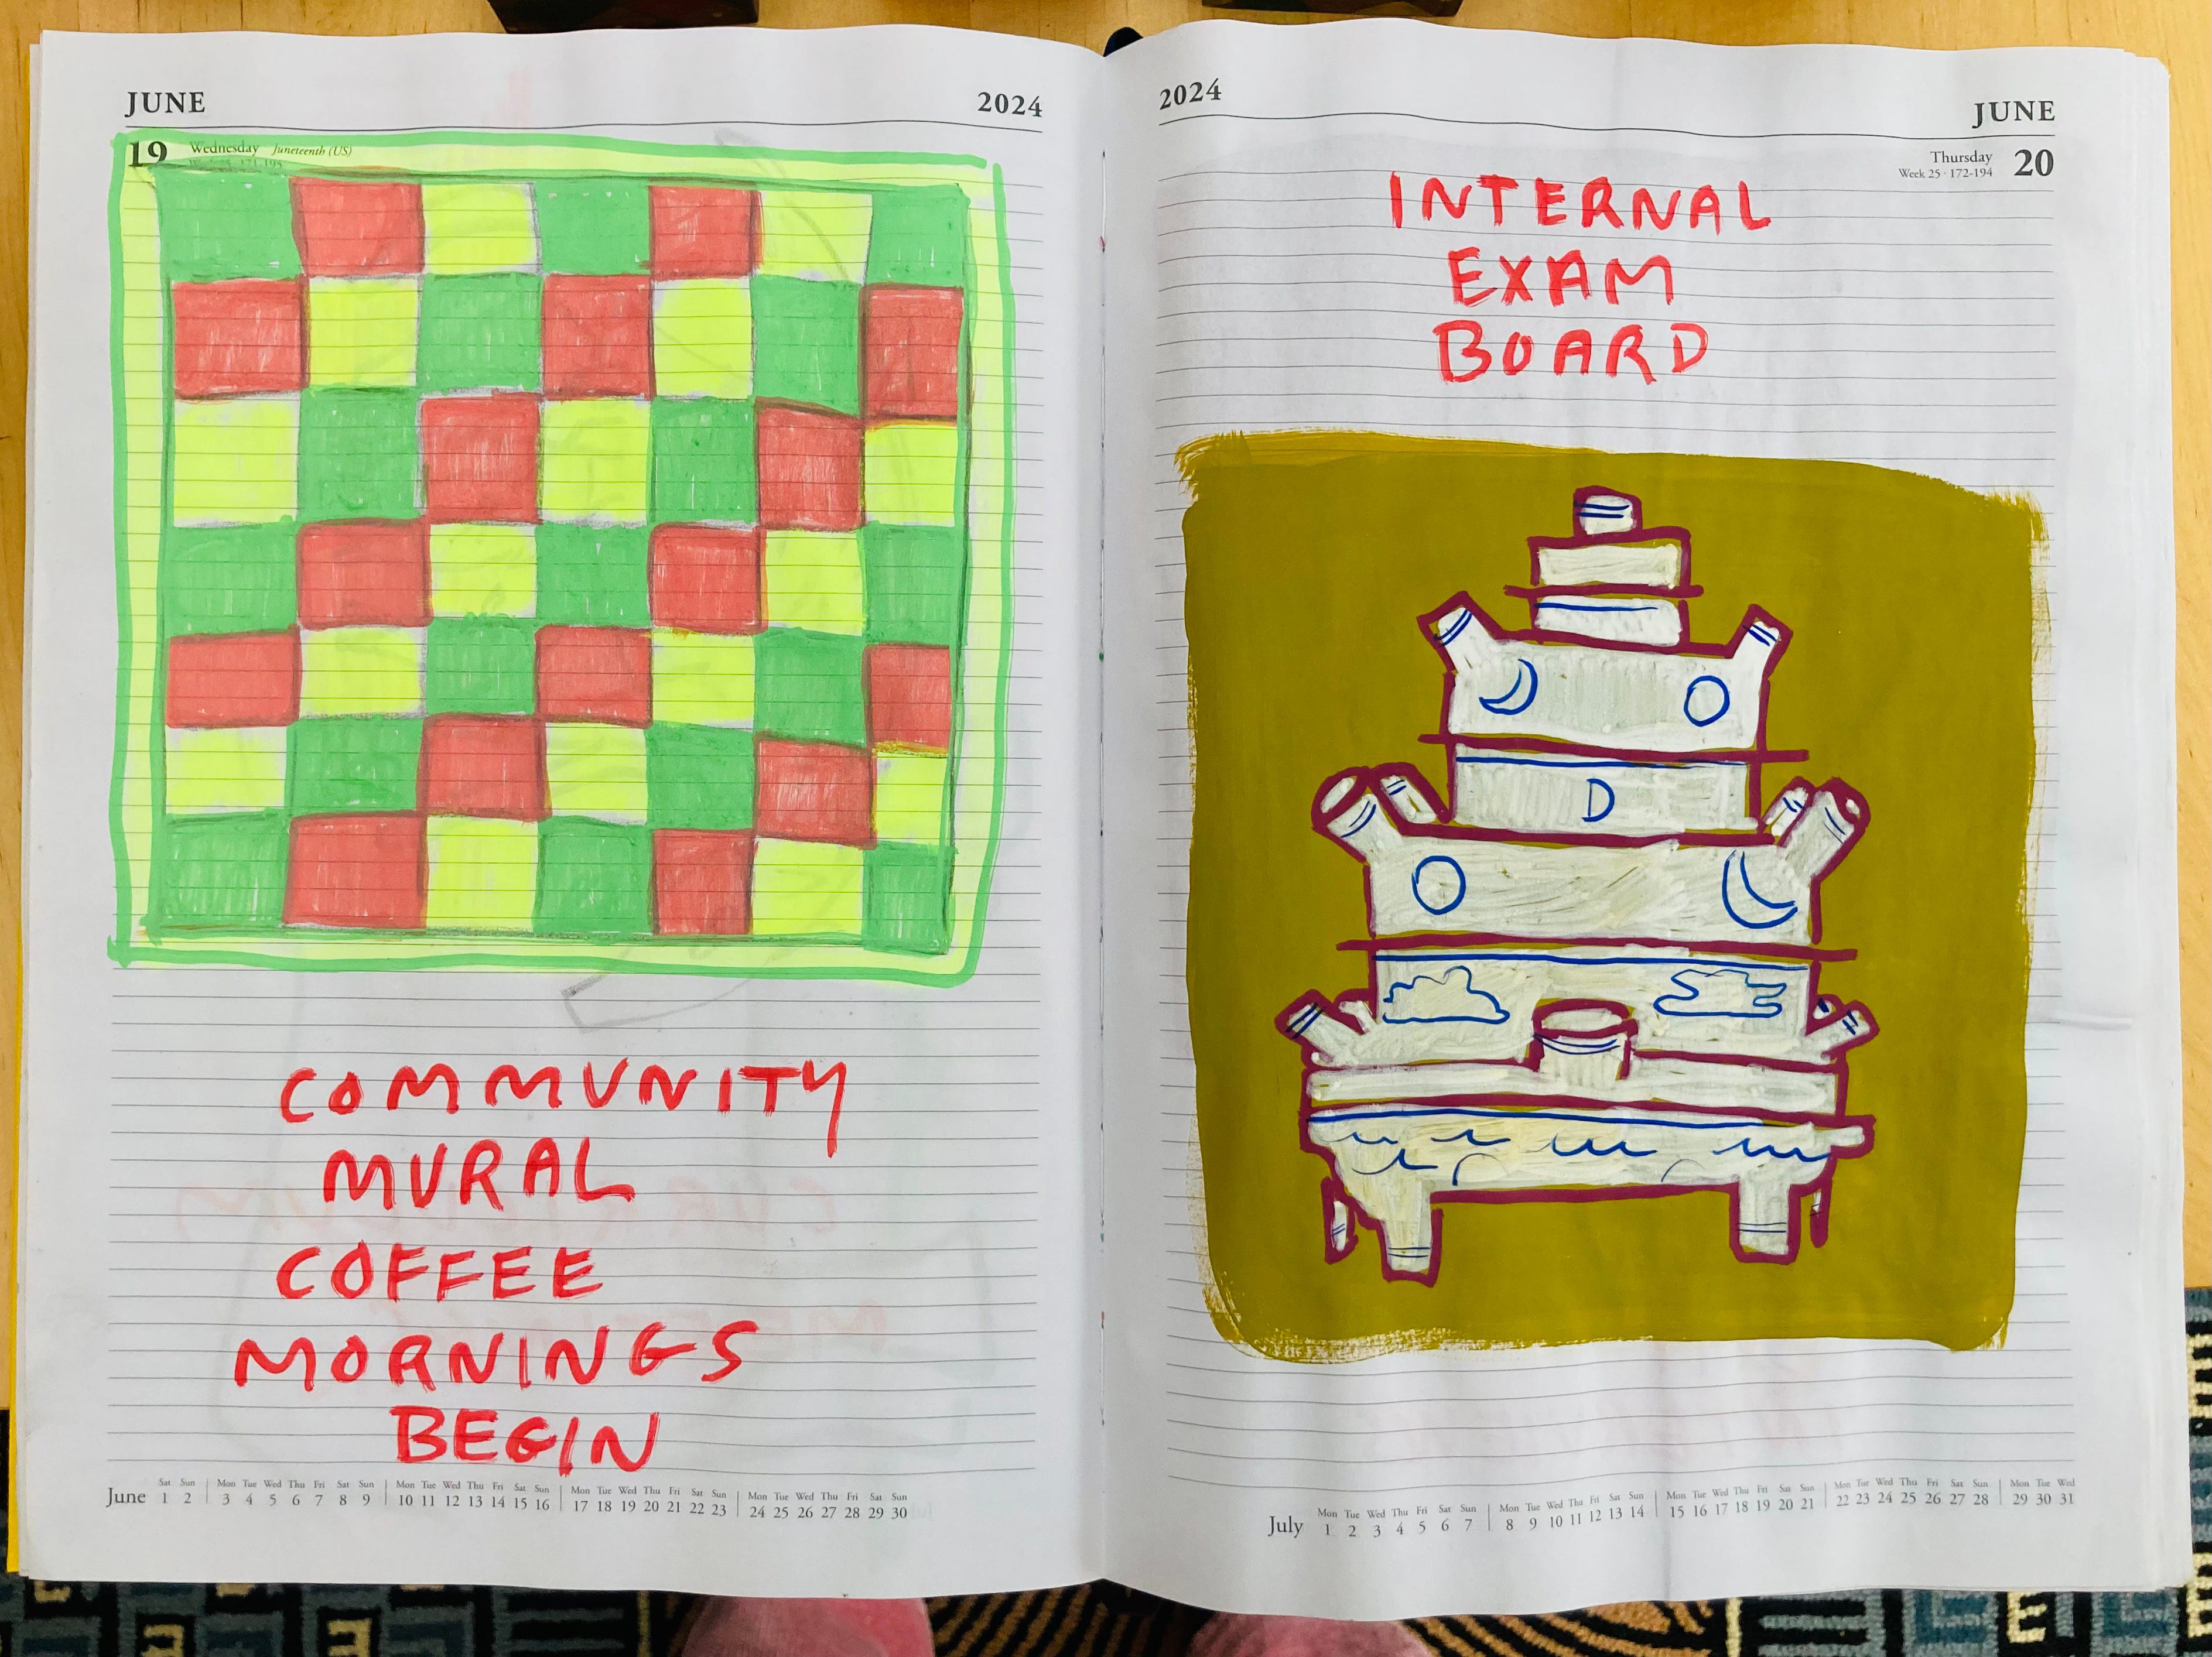 JUNE 2024
19 Wednesday Juneteenth (US)
COMMUNITY
MURAL
COFFEE
MORNINGS
BEGIN
Sat Sun Mon Tue Wed Thu Fri Sat Sun Mon Tue Wed Thu Fri Sat Sun Mon Tue Wed Thu Fri Sat Sun Mon Tue Wed Thu Fri Sat Sun
June 1 2 3 4 5 6 7 8 9 10 11 12 13 14 15 16 17 18 19 20 21 22 23 24 25 26 27 28 29 30
2024 JUNE
Thursday 20
Week 25 · 172-194
INTERNAL
EXAM
BOARD
D
Mon Tue Wed Thu Fri Sat Sun Mon Tue Wed Thu Fri Sat Sun Mon Tue Wed Thu Fri Sat Sun Mon Tue Wed Thu Fri Sat Sun Mon Tue Wed
July 1 2 3 4 5 6 7 8 9 10 11 12 13 14 15 16 17 18 19 20 21 22 23 24 25 26 27 28 29 30 31